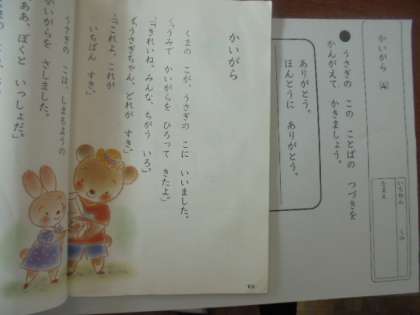 かいがら
●うさぎの この ことばの つづきを
かんがえて かきましょう。
ありがとう。
ほんとうに ありがとう。
かいがら
くまの こが、うさぎの こに いいました。
「うみで かいがらを ひろって きたよ。」
「きれいね。みんな、ちがう いろ。」
「うさぎちゃん、どれが すき。」
「これよ。これが
いちばん すき。」
うさぎの こは、しまもようの
かいがらを さしました。
ああ、ぼくと いっしょだ。